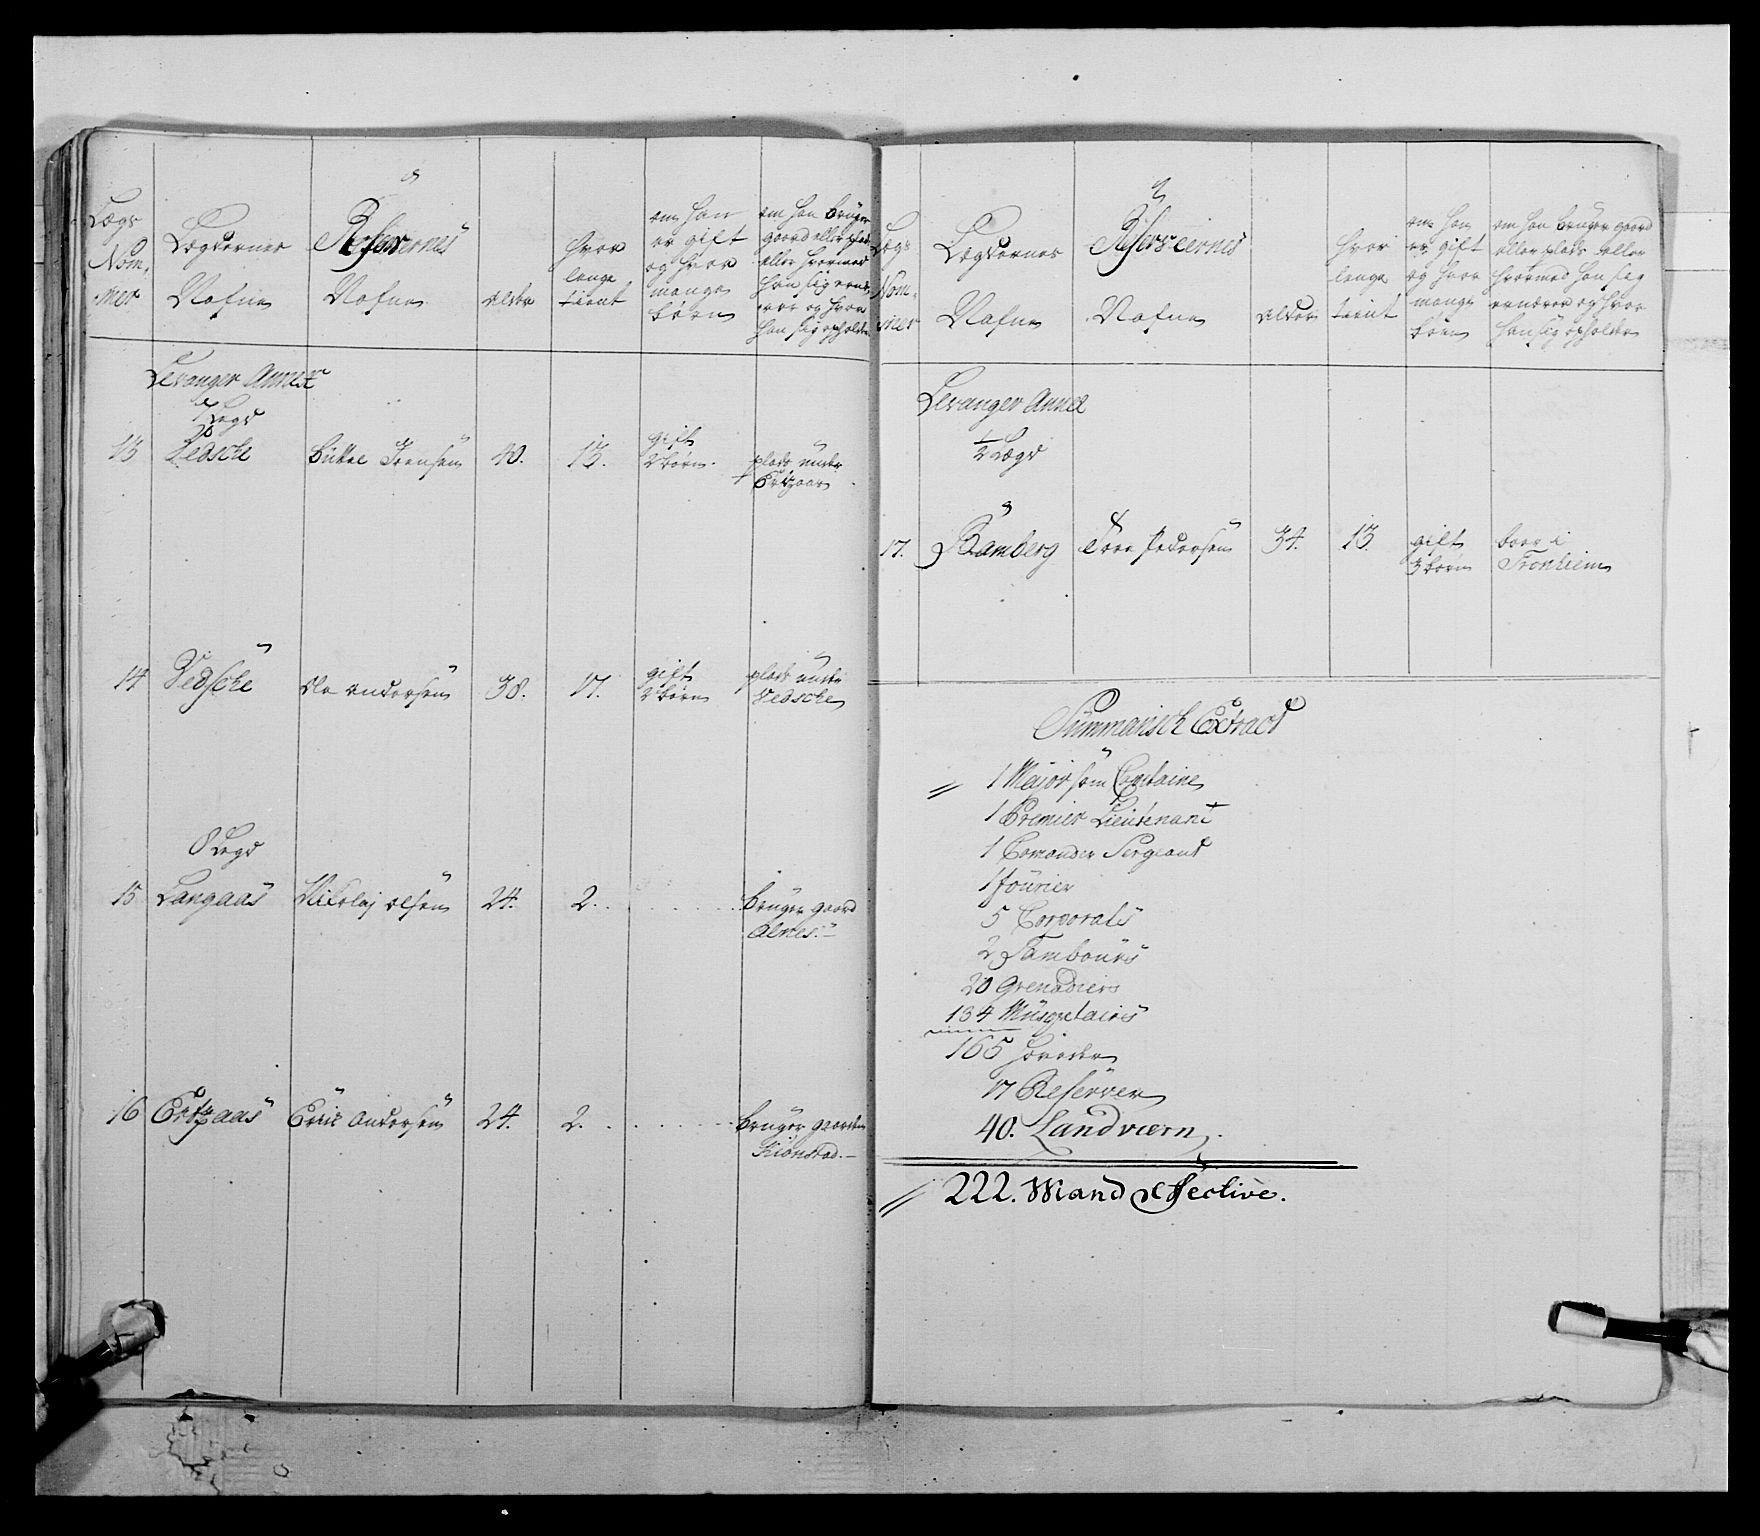 Lægs
Nom,
mer
Lægdernes
Nafne
Reserverne
Nafne
alder
hvor
lenge
tient
om han
er gift
og hvor
mange
börn
om han bruger
gaard eller plads
eller hvormed
han sig ernæ
rer og hvor
han sig opholder
Levanger Annex
7 Legd
13 Vedsche
Jrensen 40. 13. gift
2 börn. plads under
14 Vedsche Ole Andersen 38. 17. gift
2 börn plads under
Vedsche
8 Legd
15 Langaas Nikolaj olsen 24. 2. . . . . . . bruger gaard
Alnes.
16 Erik Andersen 24. 2. . . . . . . bruger gaarden
Kiönstad.
9
Lægs
Nom,
mer
Lægdernes
Nafne
Nafne
alder
hvor
lenge
tient
om han
er gift
og hvor
mange
börn
om han bruger gaard
eller plads eller
hvormed han sig
ernærer og hvor
han sig opholder
Levanger Annex
1/2 Lægd
17. Ramberg Tore Pedersen 34. 13. gift
3 börn boer i
Tronhiem
Summarisch Extract
1 Major som Capitaine
1 Premier Lieutenant
1 Comander Sergeant
1 fourier
5 Corporals
2 Tambours
20 Grenadiers
134 Musqvetairs
165 hoveder
17 Reserver
40. Landværn.
222. Mand Effective.